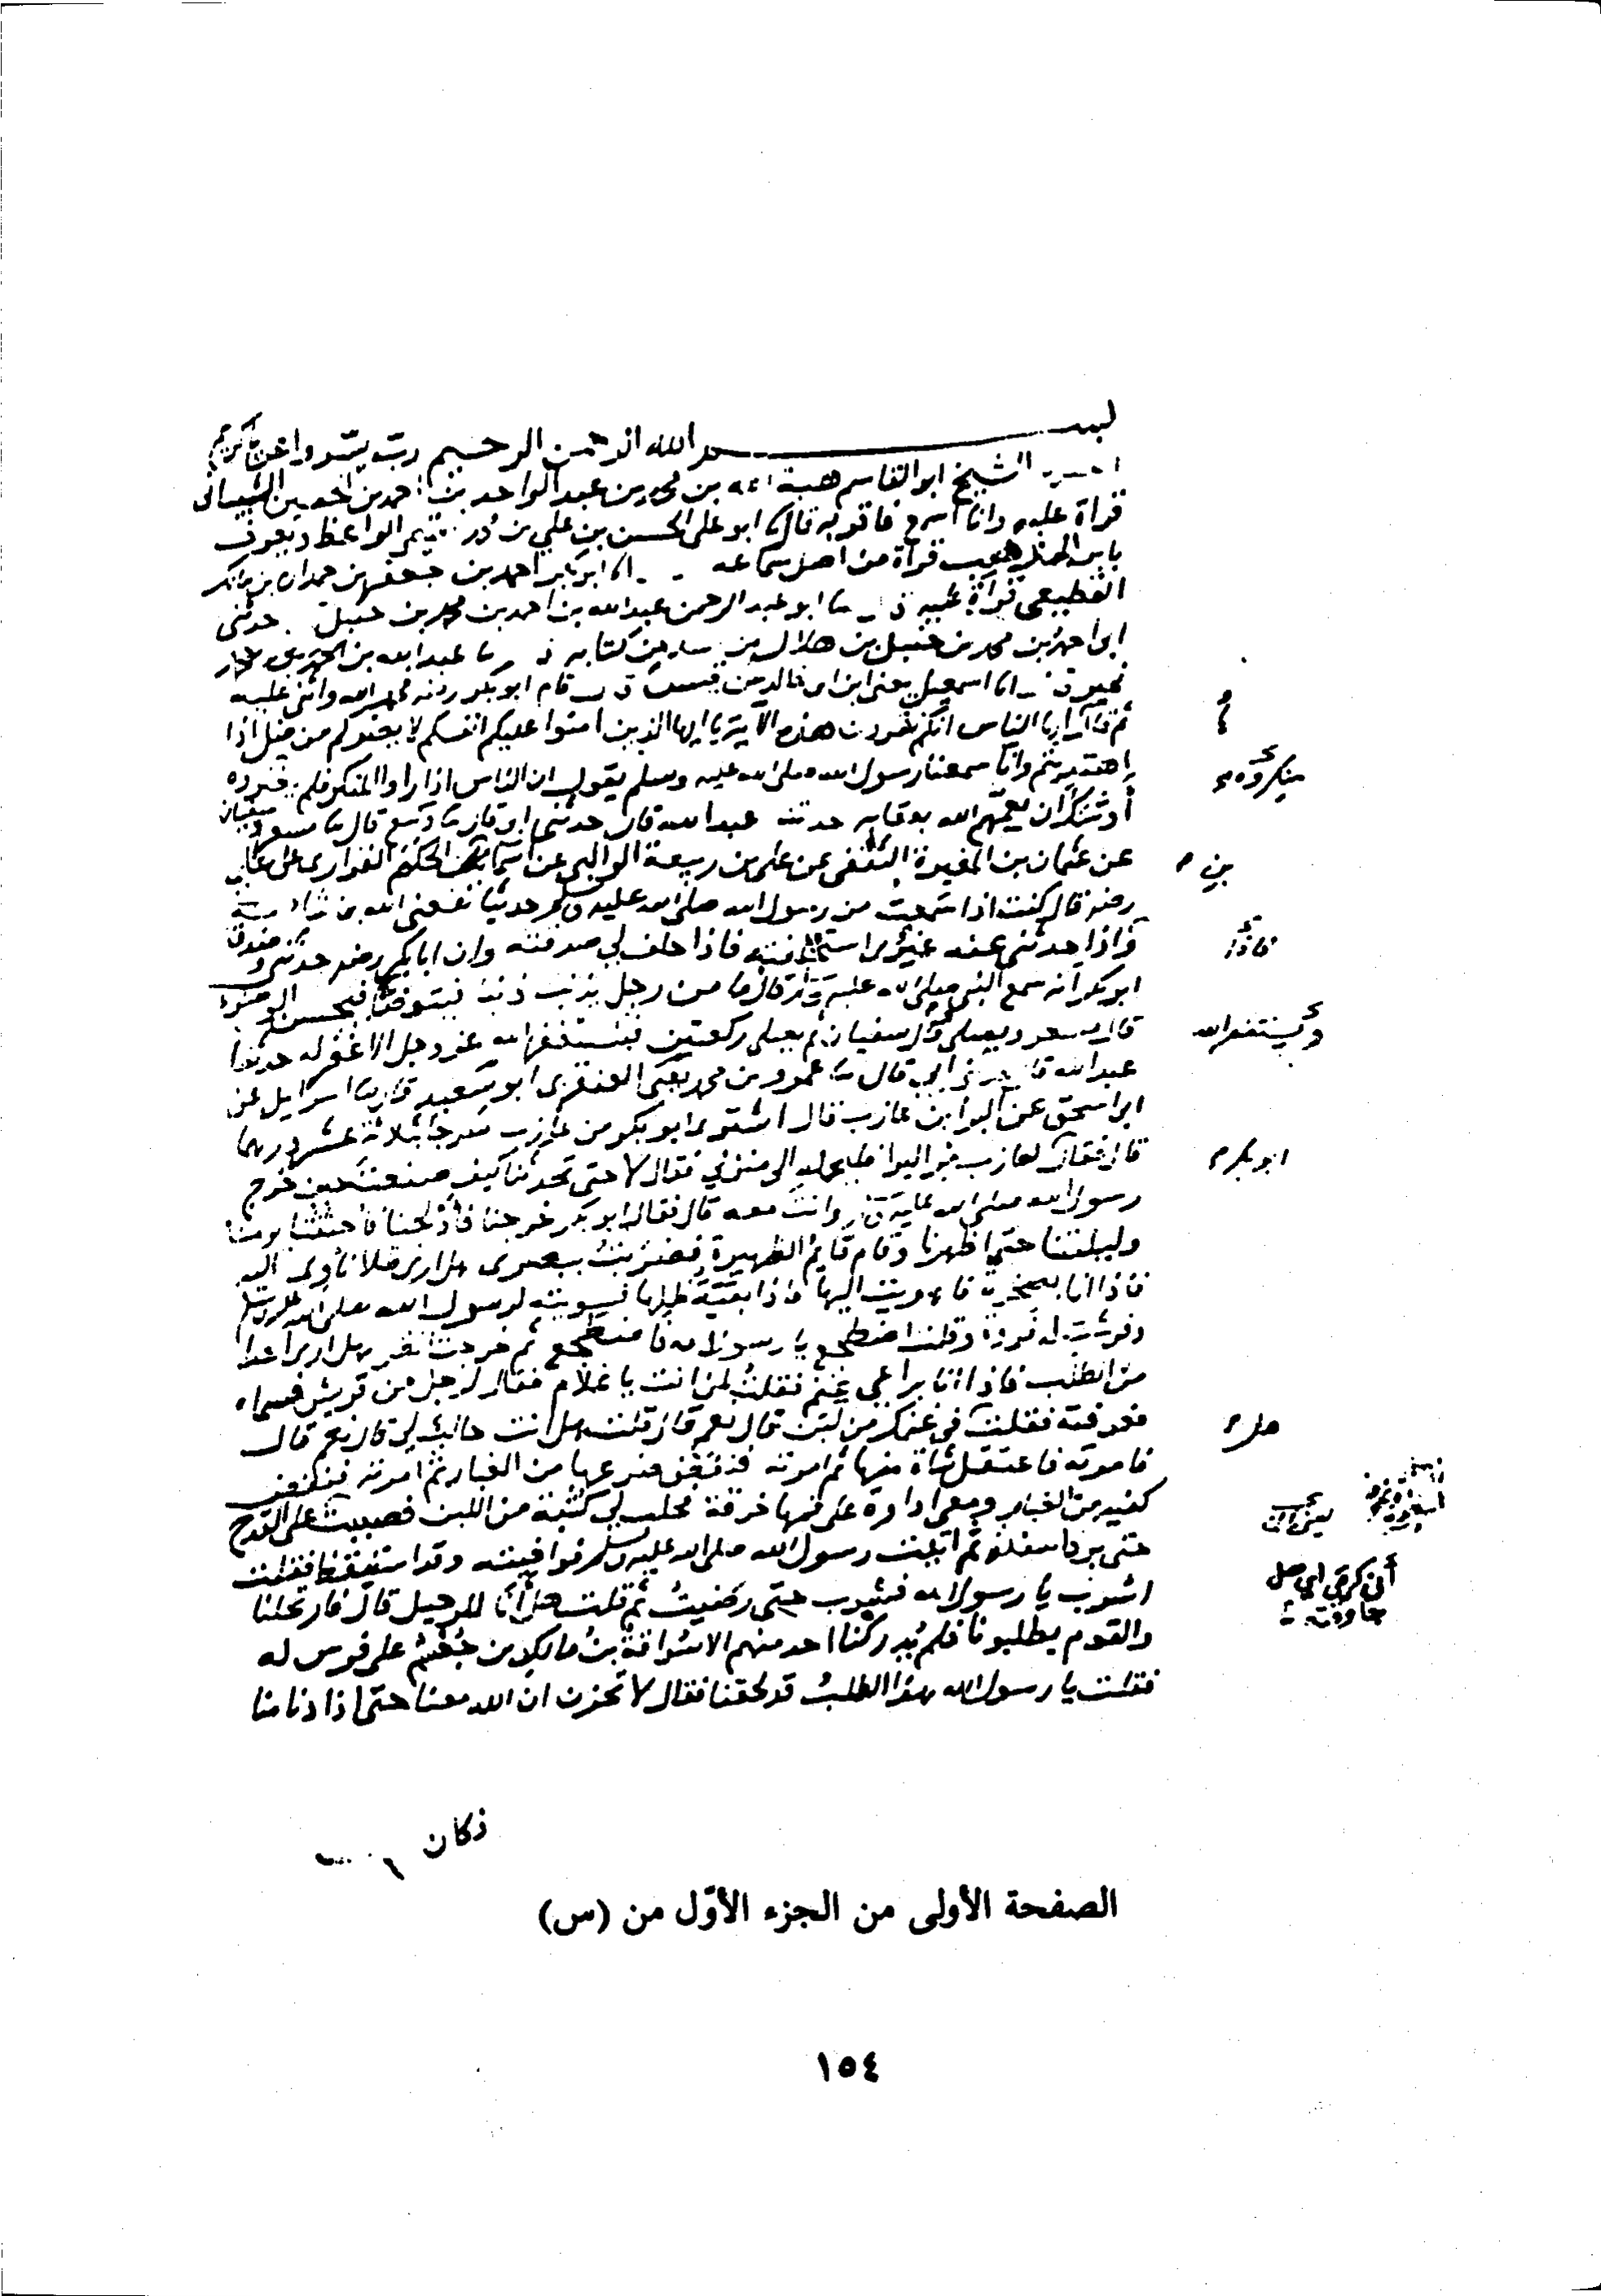 بسم الله الرحمن الرحيم رب يسر واعن يا كريم
الشيخ ابو القاسم هبة الله بن محمد بن عبد الواحد بن احمد بن الحصين الشيباني
قراة عليه وانا اسمع فاقر به قال انا ابو علي الحسن بن علي بن التميمي الواعظ ويعرف
بابن المذهب قراة من اصل سماعه انا ابو بكر احمد بن جعفر بن حمدان بن مالك
القطيعي قراة عليه ثنا ابو عبد الرحمن عبد الله بن احمد بن محمد بن حنبل حدثني
ابي احمد بن محمد بن حنبل بن هلال بن من كتابه ثنا عبد الله بن
نمير انا اسمعيل يعني ابن ابي خالد عن قيس قام ابو بكر فحمد الله واثنى عليه
ثم قال ايها الناس انكم تقرون هذه الآية يا ايها الذين امنوا عليكم انفسكم لا يضركم من ضل اذا
اهتديتم وانا سمعنا رسول الله صلى الله عليه وسلم يقول ان الناس اذا راوا المنكر فلم
ينكروه
أوشك ان يعمهم الله بعقابه حدثنا عبد الله قال حدثني ابي قال ثنا وكيع قال ثنا مسعر وسفيان
عن عثمان بن المغيرة الثقفي عن علي بن ربيعة الوالبي عن اسما بن الحكم الفزاري عن علي
بن
قال كنت اذا سمعت من رسول الله صلى الله عليه وسلم حديثا نفعني الله بما شاء منه
واذا حدثني عنه غيري استحلفته فاذا حلف لي صدقته وان ابا بكر حدثني وصدق
فاذا
ابو بكر انه سمع النبي صلى الله عليه وسلم قال ما من رجل يذنب ذنبا فيتوضأ فيحسن الوضوء
قال مسعر ويصلي وقال سفيان ثم يصلي ركعتين فيستغفر الله عز وجل الا غفر له حدثنا
ويستغفر الله
عبد الله قال حدثني ابي قال ثنا عمرو بن محمد يعني العنقزي ابو سعيد قال ثنا اسرايل عن
ابي اسحق عن البرا بن عازب قال اشترى ابو بكر من عازب سرجا بثلاثة عشر درهما
قال فقال لعازب مر البرا فليحمله الى منزلي فقال لا حتى تحدثنا كيف صنعت حين خرج
ابو بكر
رسول الله صلى الله عليه وسلم وانت معه قال فقال ابو بكر خرجنا فأدلجنا فأحثثنا يومنا
وليلتنا حتى اظهرنا وقام قايم الظهيرة فضربت ببصري هل ارى ظلا نأوي اليه
فاذا انا بصخرة فاهويت اليها فاذا بقية ظلها فسويته لرسول الله صلى الله عليه وسلم
وفرشت له فروة وقلت اضطجع يا رسول الله فاضطجع ثم خرجت انظر هل ارى احدا
من الطلب فاذا انا براعي غنم فقلت لمن انت يا غلام فقال لرجل من قريش فسماه
فعرفته فقلت في غنمك من لبن قال نعم قال قلت هل انت حالب لي قال نعم قال
هل
فامرته فاعتقل شاة منها ثم امرته فنفض ضرعها من الغبار ثم امرته فنفض
كفيه من الغبار ومعي اداوة على فمها خرقة فحلب لي كثبة من اللبن فصببت على القدح
حتى برد اسفله ثم اتيت رسول الله صلى الله عليه وسلم فوافيته وقد استيقظ فقلت
اشرب يا رسول الله فشرب حتى رضيت ثم قلت هل أنا للرحيل قال فارتحلنا
والقوم يطلبونا فلم يدركنا احد منهم الا سراقة بن مالك بن جعشم على فرس له
فقلت يا رسول الله هذا الطلب قد لحقنا فقال لا تحزن ان الله معنا حتى اذا دنا منا
فكان
الصفحة الأولى من الجزء الأوّل من (س)
١٥٤